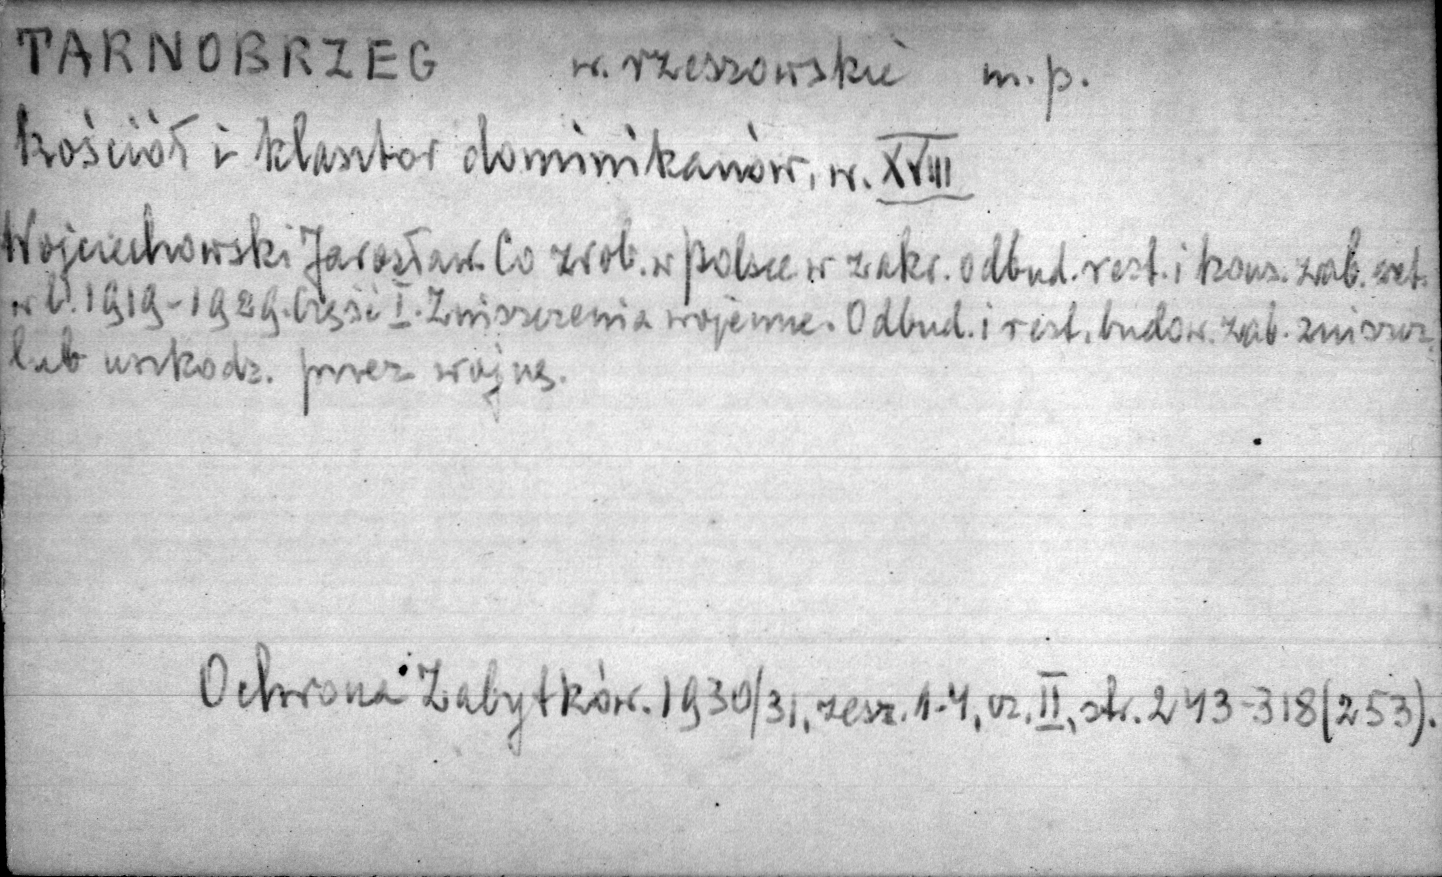 TARNOBRZEG w. rzeszowskie m. p.
kościół i klasztor dominikanów, w. XVIII
Wojciechowski Jarosław. Co zrob. w Polsce w zakr. odbud. rest. i kons. zab. szt.
w l. 1919-1929. Część I. Zniszczenia wojenne. Odbud. i rest. budow. zab. zniszcz.
lub uszkodz. przez wojnę.
Ochrona Zabytków. 1930/31, zesz. 1-4, cz. II, str. 243-318 (253).